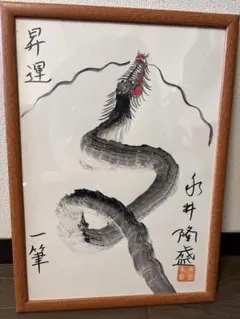 昇運
一筆
永井隆盛